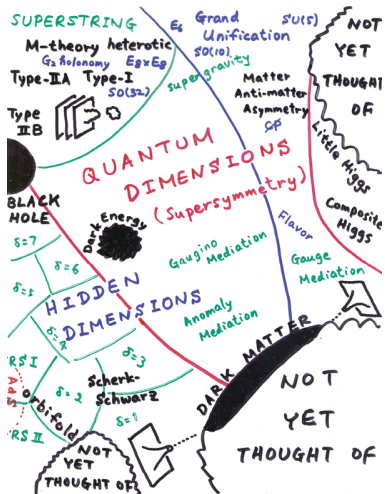 SUPERSTRING
M-theory heterotic
G₂ holonomy E₈×E₈
Type-IIA Type-I
SO(32)
Type
IIB
E₆
Grand
Unification
SU(5)
SO(10)
supergravity
Matter
Anti-matter
Asymmetry
CP
NOT
YET
THOUGHT OF
Little Higgs
Composite
Higgs
QUANTUM
DIMENSIONS
(Supersymmetry)
BLACK
HOLE
Dark Energy
Flavor
Gaugino
Mediation
Gauge
Mediation
Anomaly
Mediation
δ=7
δ=6
δ=5
HIDDEN
DIMENSIONS
δ=4
δ=3
RS I
AdS
RS II
orbifold
δ=2
Scherk-
Schwarz
δ=1
DARK MATTER
NOT
YET
THOUGHT OF
NOT
YET
THOUGHT OF